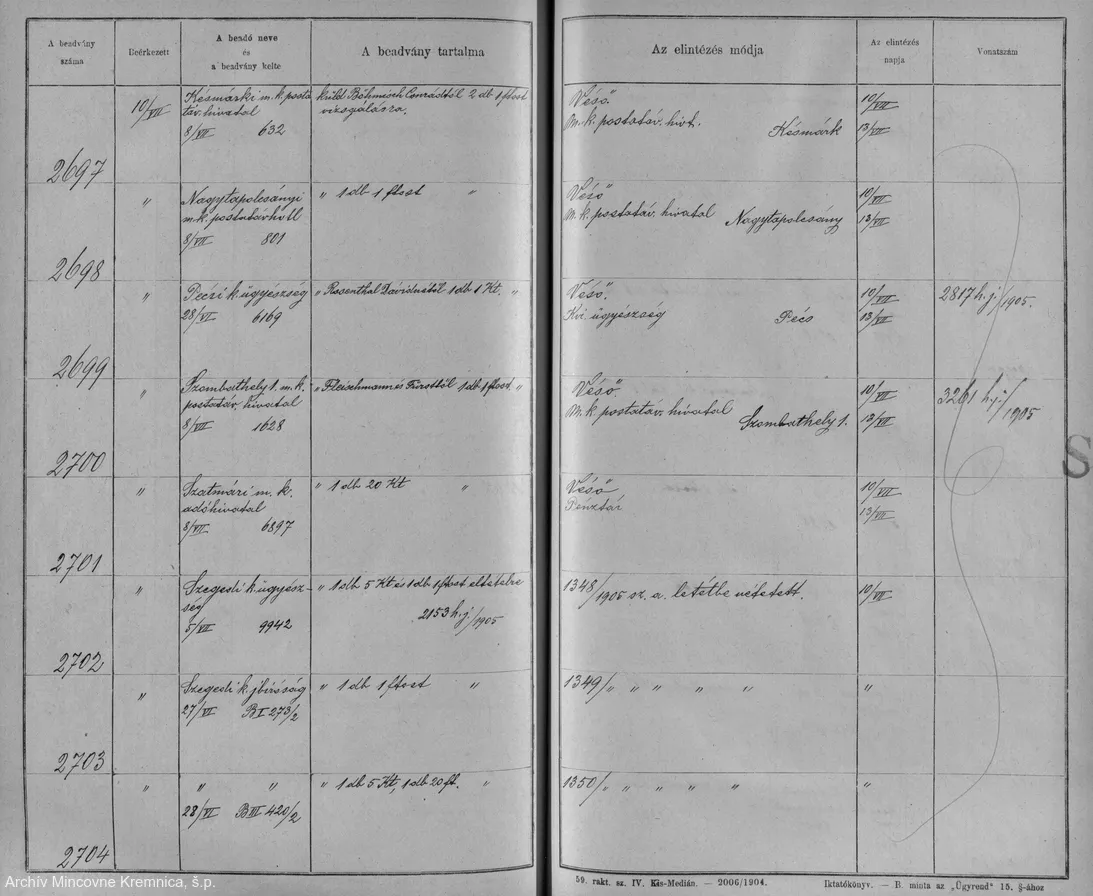 A beadvány száma
Beérkezett
A beadó neve és a beadvány kelte
A beadvány tartalma
Az elintézés módja
Az elintézés napja
Vonatszám
2697
10/VII
Késmárki m. k. posta
táv. hivatal
8/VII 632
küld Böhmisch Conrádtól 2 db 1 ftost
vizsgálásra.
"Véső"
M. k. postatáv. hivt.
Késmárk
10/VII
13/VII
2698
"
Nagytapolcsányi
m. k. postatávhvtl
8/VII 801
" 1 db 1 ftost "
"Véső"
M. k. postatáv. hivatal Nagytapolcsány
10/VII
13/VII
2699
"
Péczi k. ügyészség
28/VI 6169
" Rosenthal Dávidnétól 1 db 1 Kt. "
"Véső"
Kir. ügyészség
Pécs
10/VII
13/VII
2817 h. j./1905.
2700
"
Szombathely 1. m. k.
postatáv. hivatal
8/VII 1628
" Fleischmann és Fürsttől 1 db 1 ftost "
"Véső"
M. k. postatáv. hivatal
Szombathely 1.
10/VII
13/VII
3261 h. j./1905
S
2701
"
Szatmári m. k.
adóhivatal
8/VII 6897
" 1 db 20 Kt "
"Véső"
Pénztár
10/VII
13/VII
2702
"
Szegedi k. ügyész-
ség
5/VII 9942
" 1 db 5 Kt és 1 db 1 ftost eltételre
2153 h. j/1905
1348/1905 sz. a. letétbe vétetett.
10/VII
2703
"
Szegedi k. jbíróság
27/VI B I 273/2
" 1 db 1 ftost "
1349/" " " " "
"
2704
"
" "
28/VI B III 420/2
" 1 db 5 Kt, 1 db 20 ft. "
1350/" " " " "
"
59. rakt. sz. IV. Kis-Medián. — 2006/1904.
Iktatókönyv. — B. minta az „Ügyrend" 15. §-ához
Archív Mincovne Kremnica, š.p.